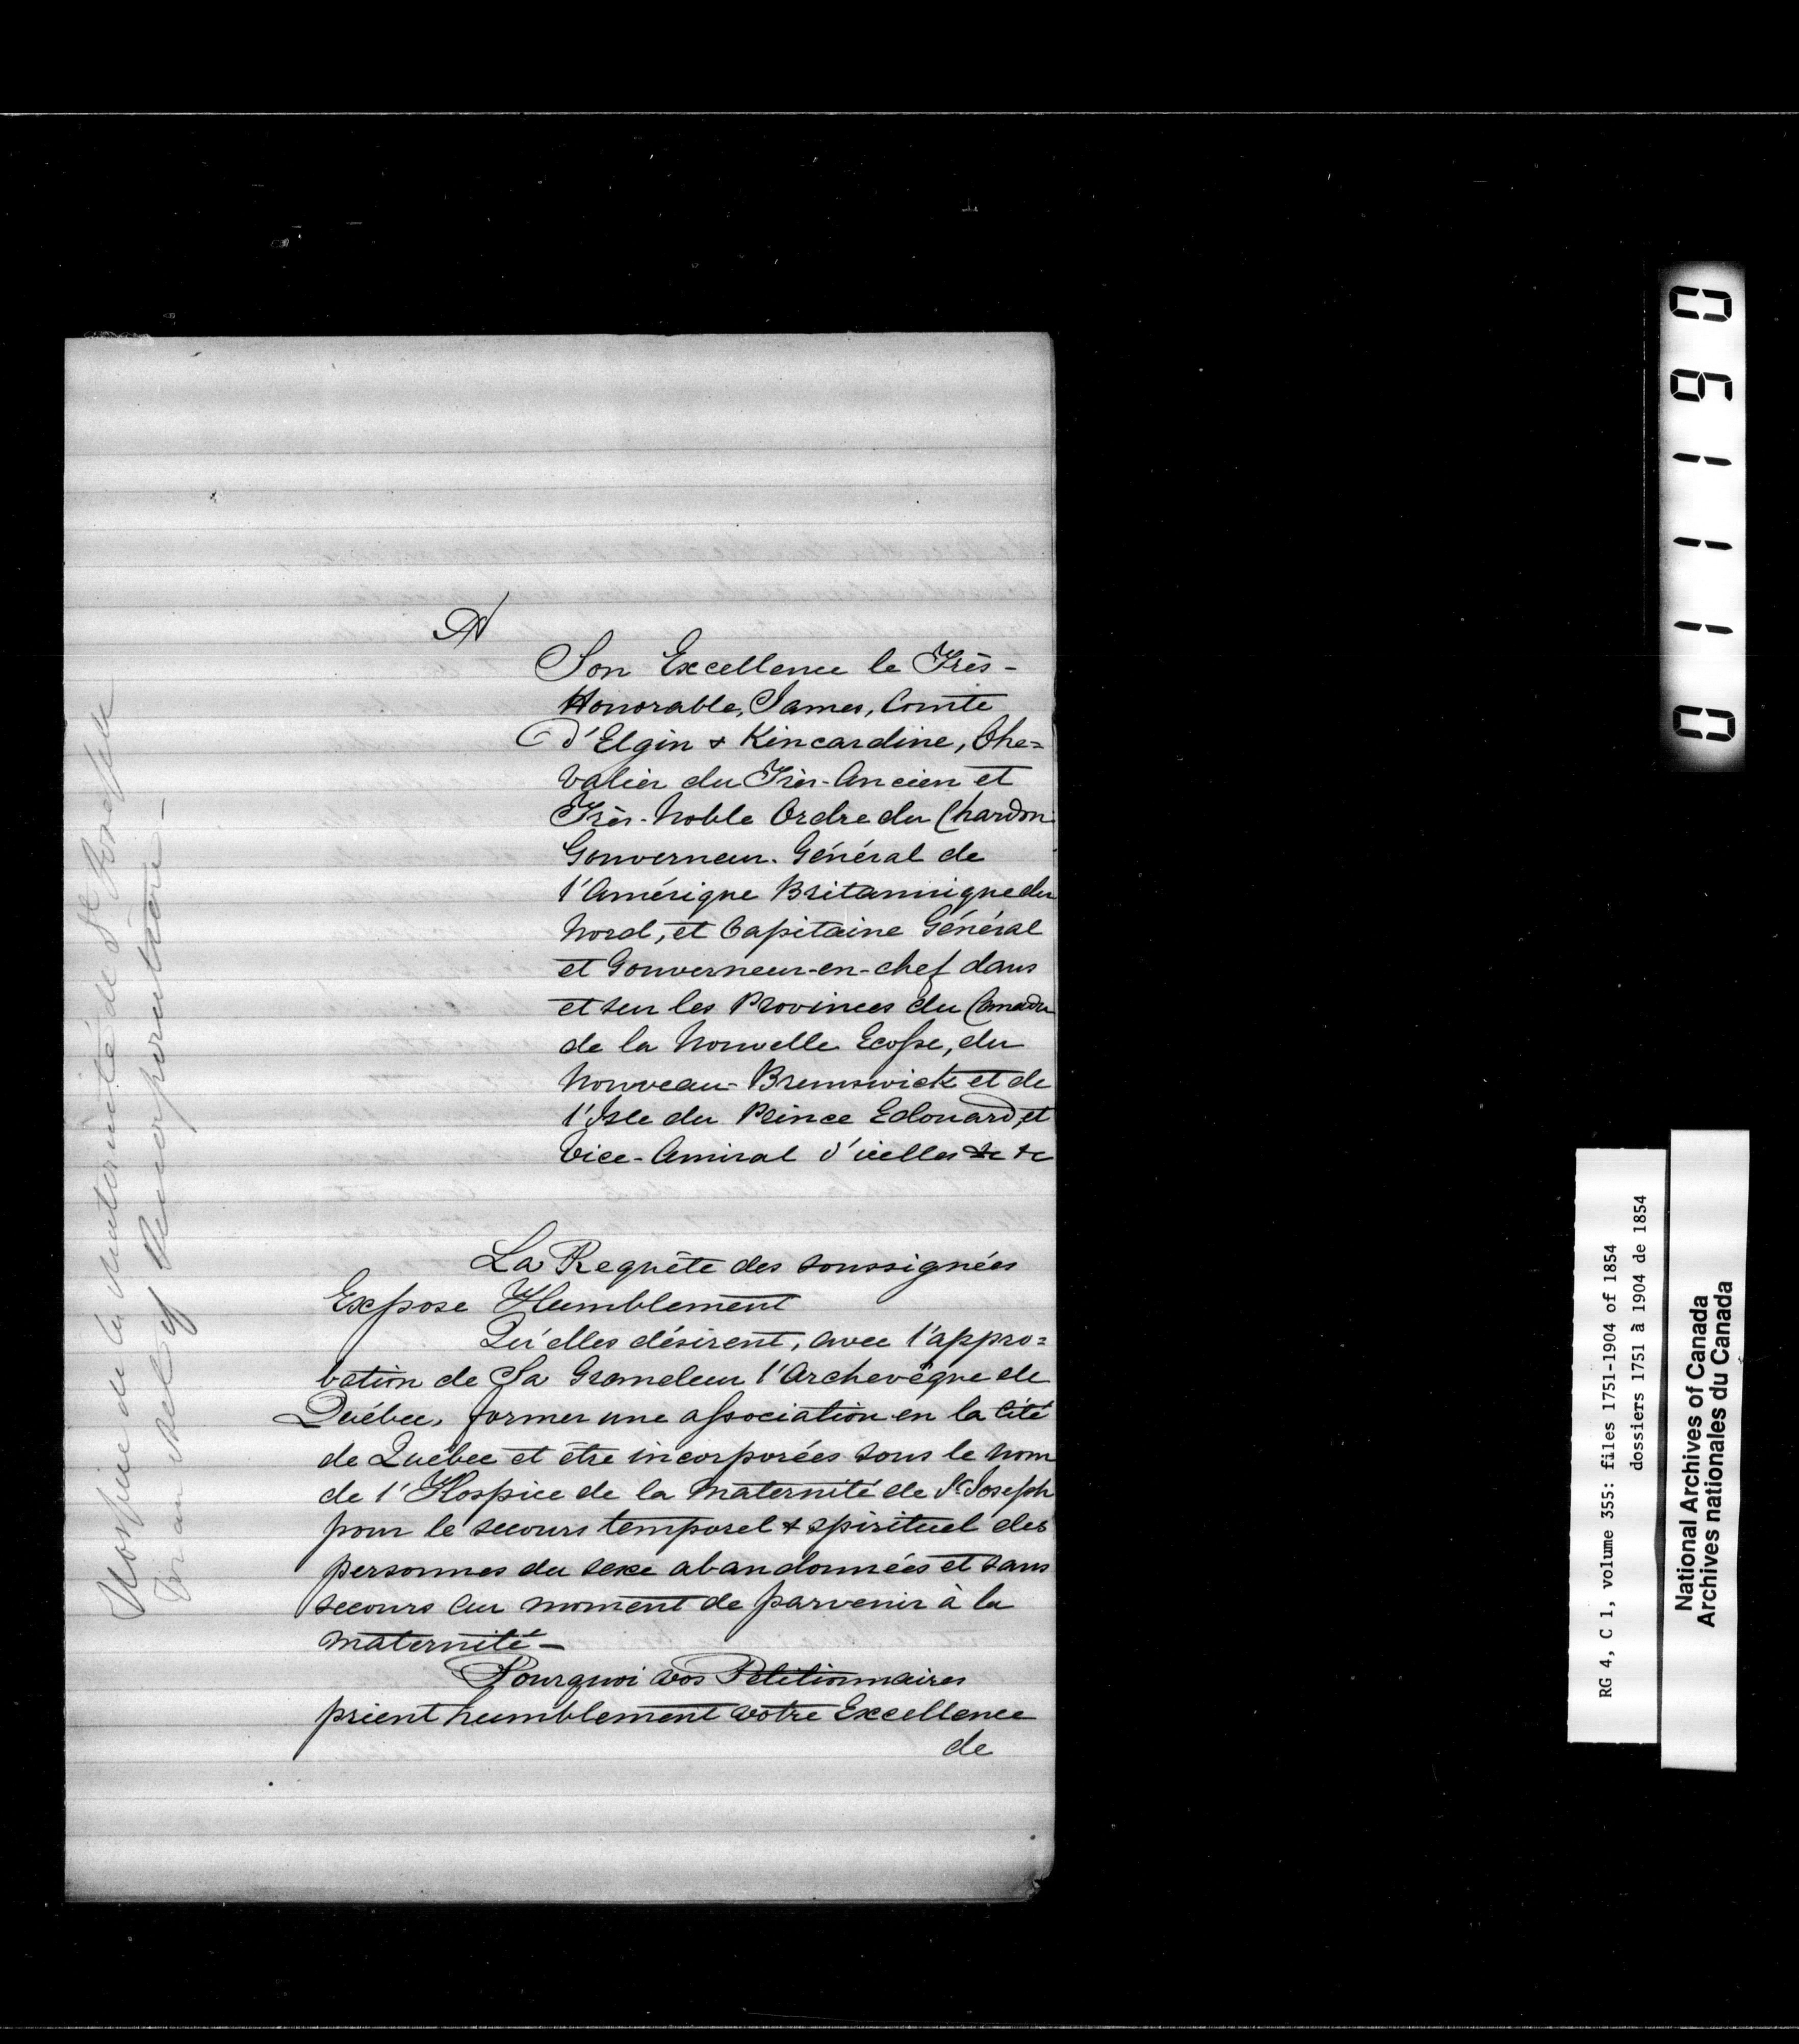 A
Son Excellence le Très-
Honorable, James, Comte
d'Elgin & Kincardine, Che=
valier du Très-Ancien et
Très-Noble Ordre du Chardon
Gouverneur-Général de
l'Amérique Britannique du
Nord, et Capitaine Général
et Gouverneur-en-chef dans
et sur les Provinces du Canada
de la Nouvelle Ecosse, du
Nouveau-Brunswick et de
l'Isle du Prince Edouard, et
Vice-Amiral d'icelles &c &c
La Requête des soussignées
Expose Humblement
Qu'elles désirent, avec l'appro=
bation de Sa Grandeur l'Archevêque de
Québec, former une association en la Cité
de Québec et être incorporées sous le nom
de l'Hospice de la Maternité de St Joseph
pour le secours temporel & spirituel des
personnes du sexe abandonnées et sans
secours au moment de parvenir à la
maternité-
Pourquoi vos Pétitionnaires
prient humblement votre Excellence
de
Hospice de la Maternité de St Joseph
act of incorporation-
011190
RG 4, C 1, volume 355: files 1751-1904 of 1854
dossiers 1751 à 1904 de 1854
National Archives of Canada
Archives nationales du Canada